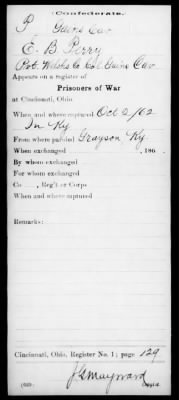 (Confederate.)
P Gains Cav
E. B. Perry
Pvt. Welshs Co Col Gains Cav
Appears on a register of
Prisoners of War
at Cincinnati, Ohio.
When and where captured Oct 2/62
In Ky
From where paroled Grayson Ky.
When exchanged, 186 .
By whom exchanged
For whom exchanged
Co. , Reg't or Corps
When and where captured
Remarks:
Cincinnati, Ohio, Register No. 1; page 129
(639) J S Maynard
Copyist.